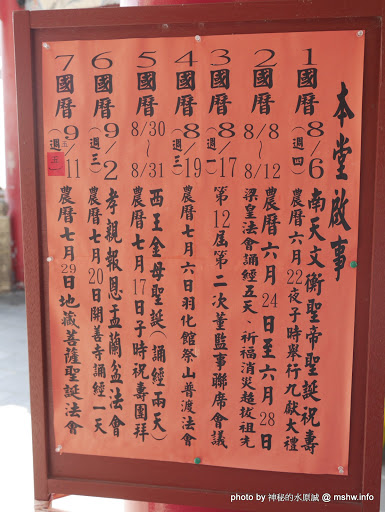 本堂啟事
1 國曆 8/6 (週四) 南天文衡聖帝聖誕祝壽
農曆六月22夜子時舉行九獻大禮
2 國曆 8/8~8/12 農曆六月24日至六月28日
梁皇法會誦經五天、祈福消災超拔祖先
3 國曆 8/17 (週一) 第12屆第二次董監事聯席會議
4 國曆 8/19 (週三) 農曆七月六日羽化館祭山普渡法會
5 國曆 8/30~8/31 西王金母聖誕(誦經兩天)
農曆七月17日子時祝壽團拜
6 國曆 9/2 (週三) 孝親報恩盂蘭盆法會
農曆七月20日開善寺誦經一天
7 國曆 9/11 (週五) 農曆七月29日地藏菩薩聖誕法會
photo by 神秘的水原誠 @ mshw.info